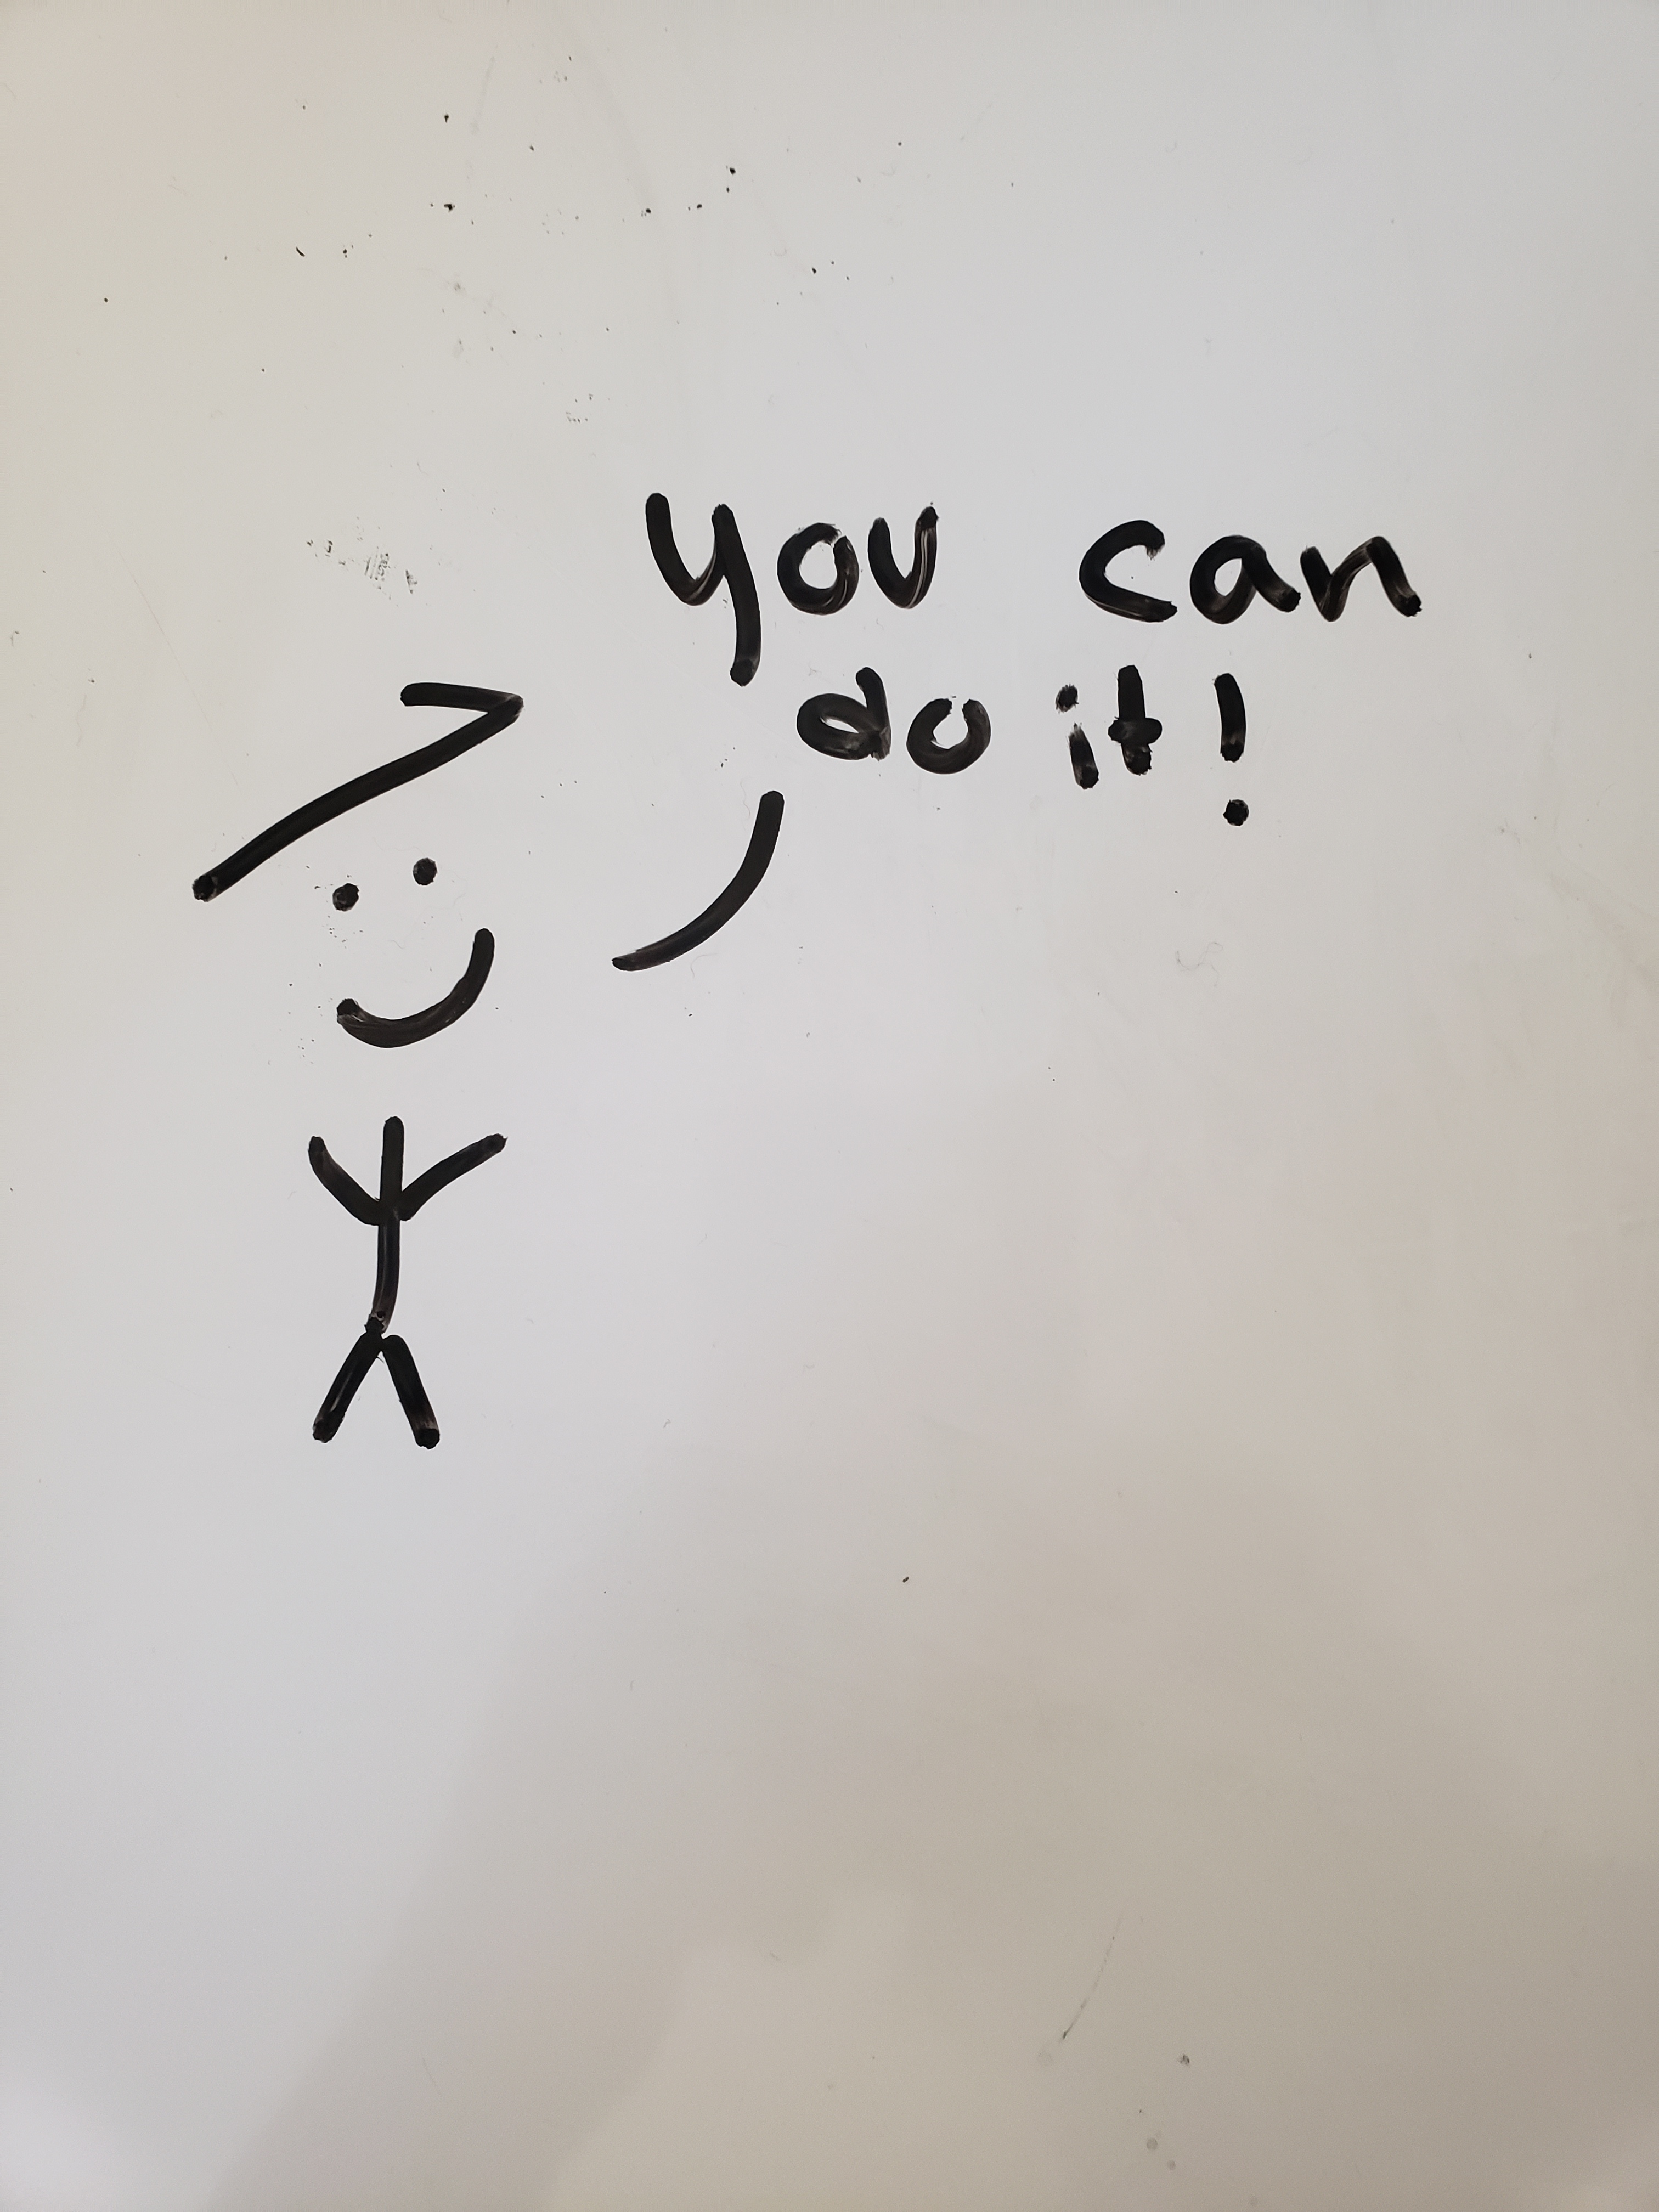 you can
do it!